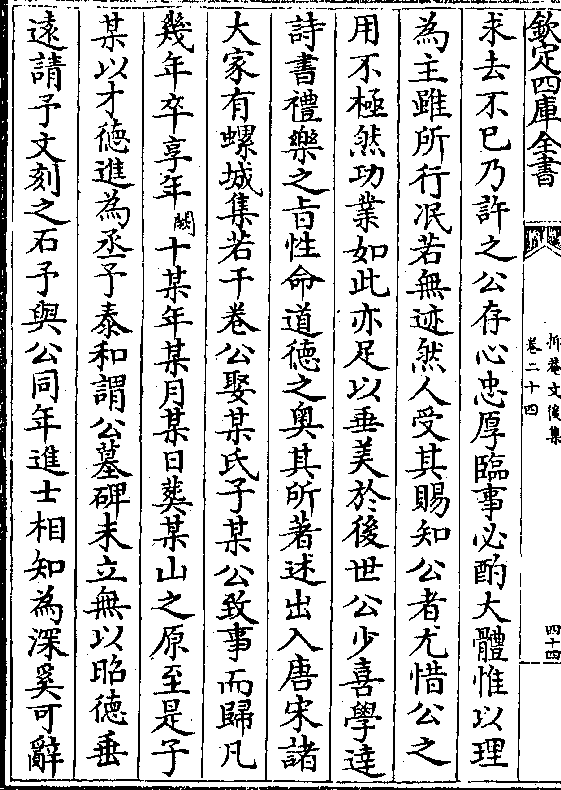 欽定四庫全書
抑菴文後集
卷二十四
四十四
求去不已乃許之公存心忠厚臨事必酌大體惟以理
為主雖所行泯若無迹然人受其賜知公者尤惜公之
用不極然功業如此亦足以垂美於後世公少喜學達
詩書禮樂之旨性命道徳之奥其所著述出入唐宋諸
大家有螺城集若干卷公娶某氏子某公致事而歸凡
幾年卒享年闕十某年某月某日葬某山之原至是子
某以才徳進為丞予泰和謂公墓碑未立無以昭徳垂
遠請予文刻之石予與公同年進士相知為深奚可辭